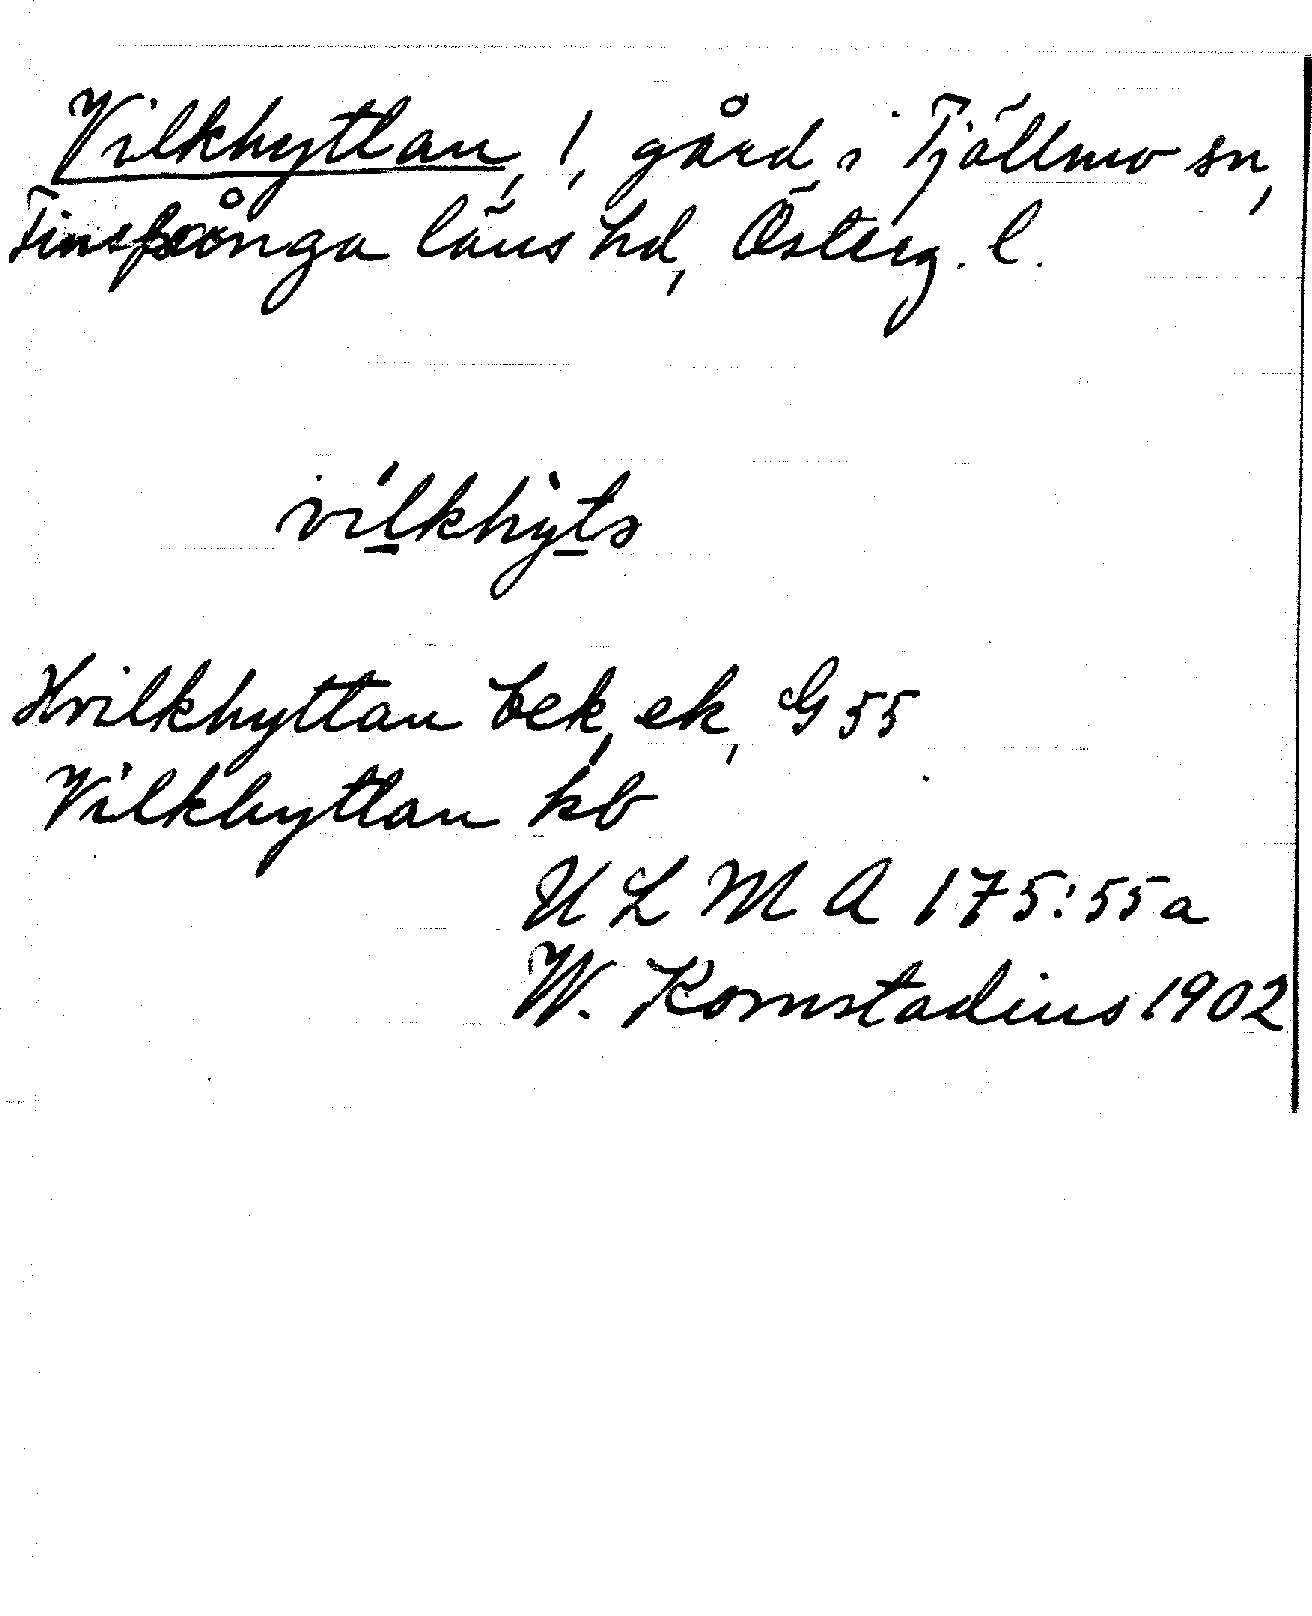 Vilkhyttan, !, gård i Tjällmo sn,
Finspånga läns hd, Österg. l.
vílkhỳtə
Hvilkhyttan bek, ek, G 55
Vilkhyttan kb
U L M A 175:55a
W. Kornstadius 1902